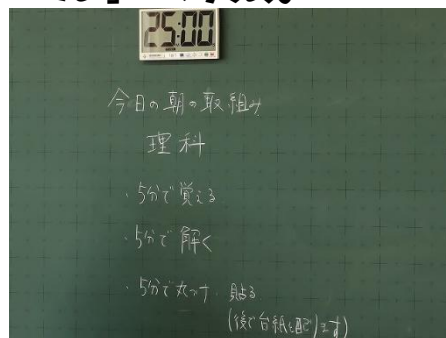 25:00
今日の朝の取組み
理科
・5分で覚える
・5分で解く
・5分で丸つけ・貼る
(後で台紙を配ります)